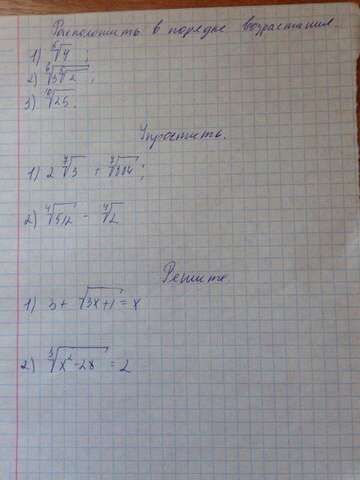 Расположить в порядке возрастания.
1) ⁵√4 ;
2) ⁶√(3 ³√2) ;
3) ¹⁰√25.
Упростить.
1) 2 ⁴√3 + ⁴√
2) ⁴√512 - ⁴√2
Решите.
1) 3 + √(3x+1) = x
2) ³√(x²-28) = 2